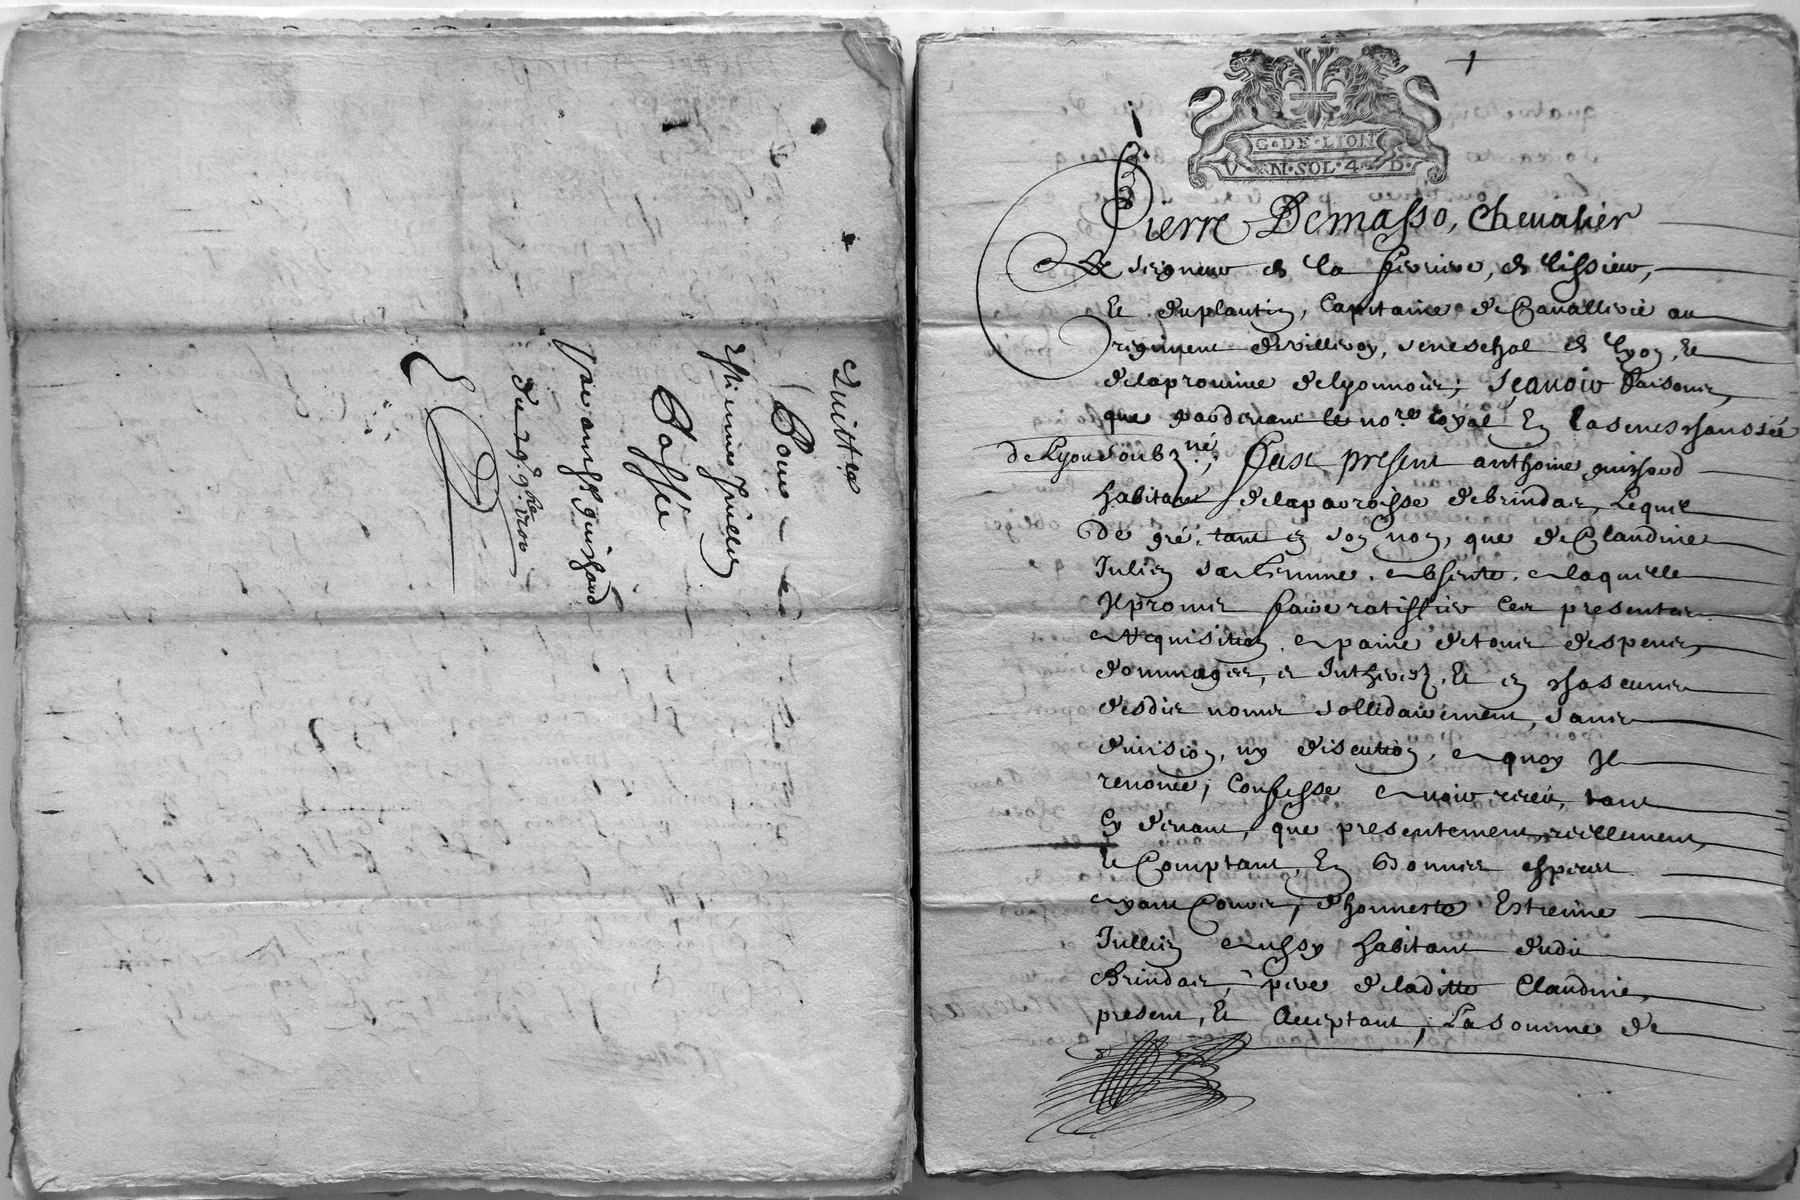 Quittce
Pour
Estienne Jullien
Passé
par anth. guichard
du 29e 9bre 1701
G·DE·LION
VN·SOL·4·D·
Pierre Demasso, Chevalier
seigneur de la ferriere, de lissieu,
et duplantin, Capitaine de Cavallerie au
regiment devilleroy, seneschal de lyon, et
delaprovince delyonnois; scavoir faisons,
que pardevant le nore royal En lasenes chaussée
de Lyon soubzné; fust present anthoine guichard
habitant delaparoisse debrindas, Lequel
de gré, tant en son nom, que de Claudine
Julien sa femme, absente, a laquelle
Il promet faire ratiffier ces presentes
a requisition, a paine detous despens,
dommages, et Intherestz, Et en chascuns
desdits noms sollidairement, sans
division, ny discution, a quoy Il
renonce; Confesse avoir receu, tant
cy devant, que presentement reellement,
et Comptant, En Bonnes especes
ayant Cours, d'honneste Estienne
Jullien aussy habitant dudit
Brindas, pere deladitte Claudine,
present, Et Acceptant, La somme de